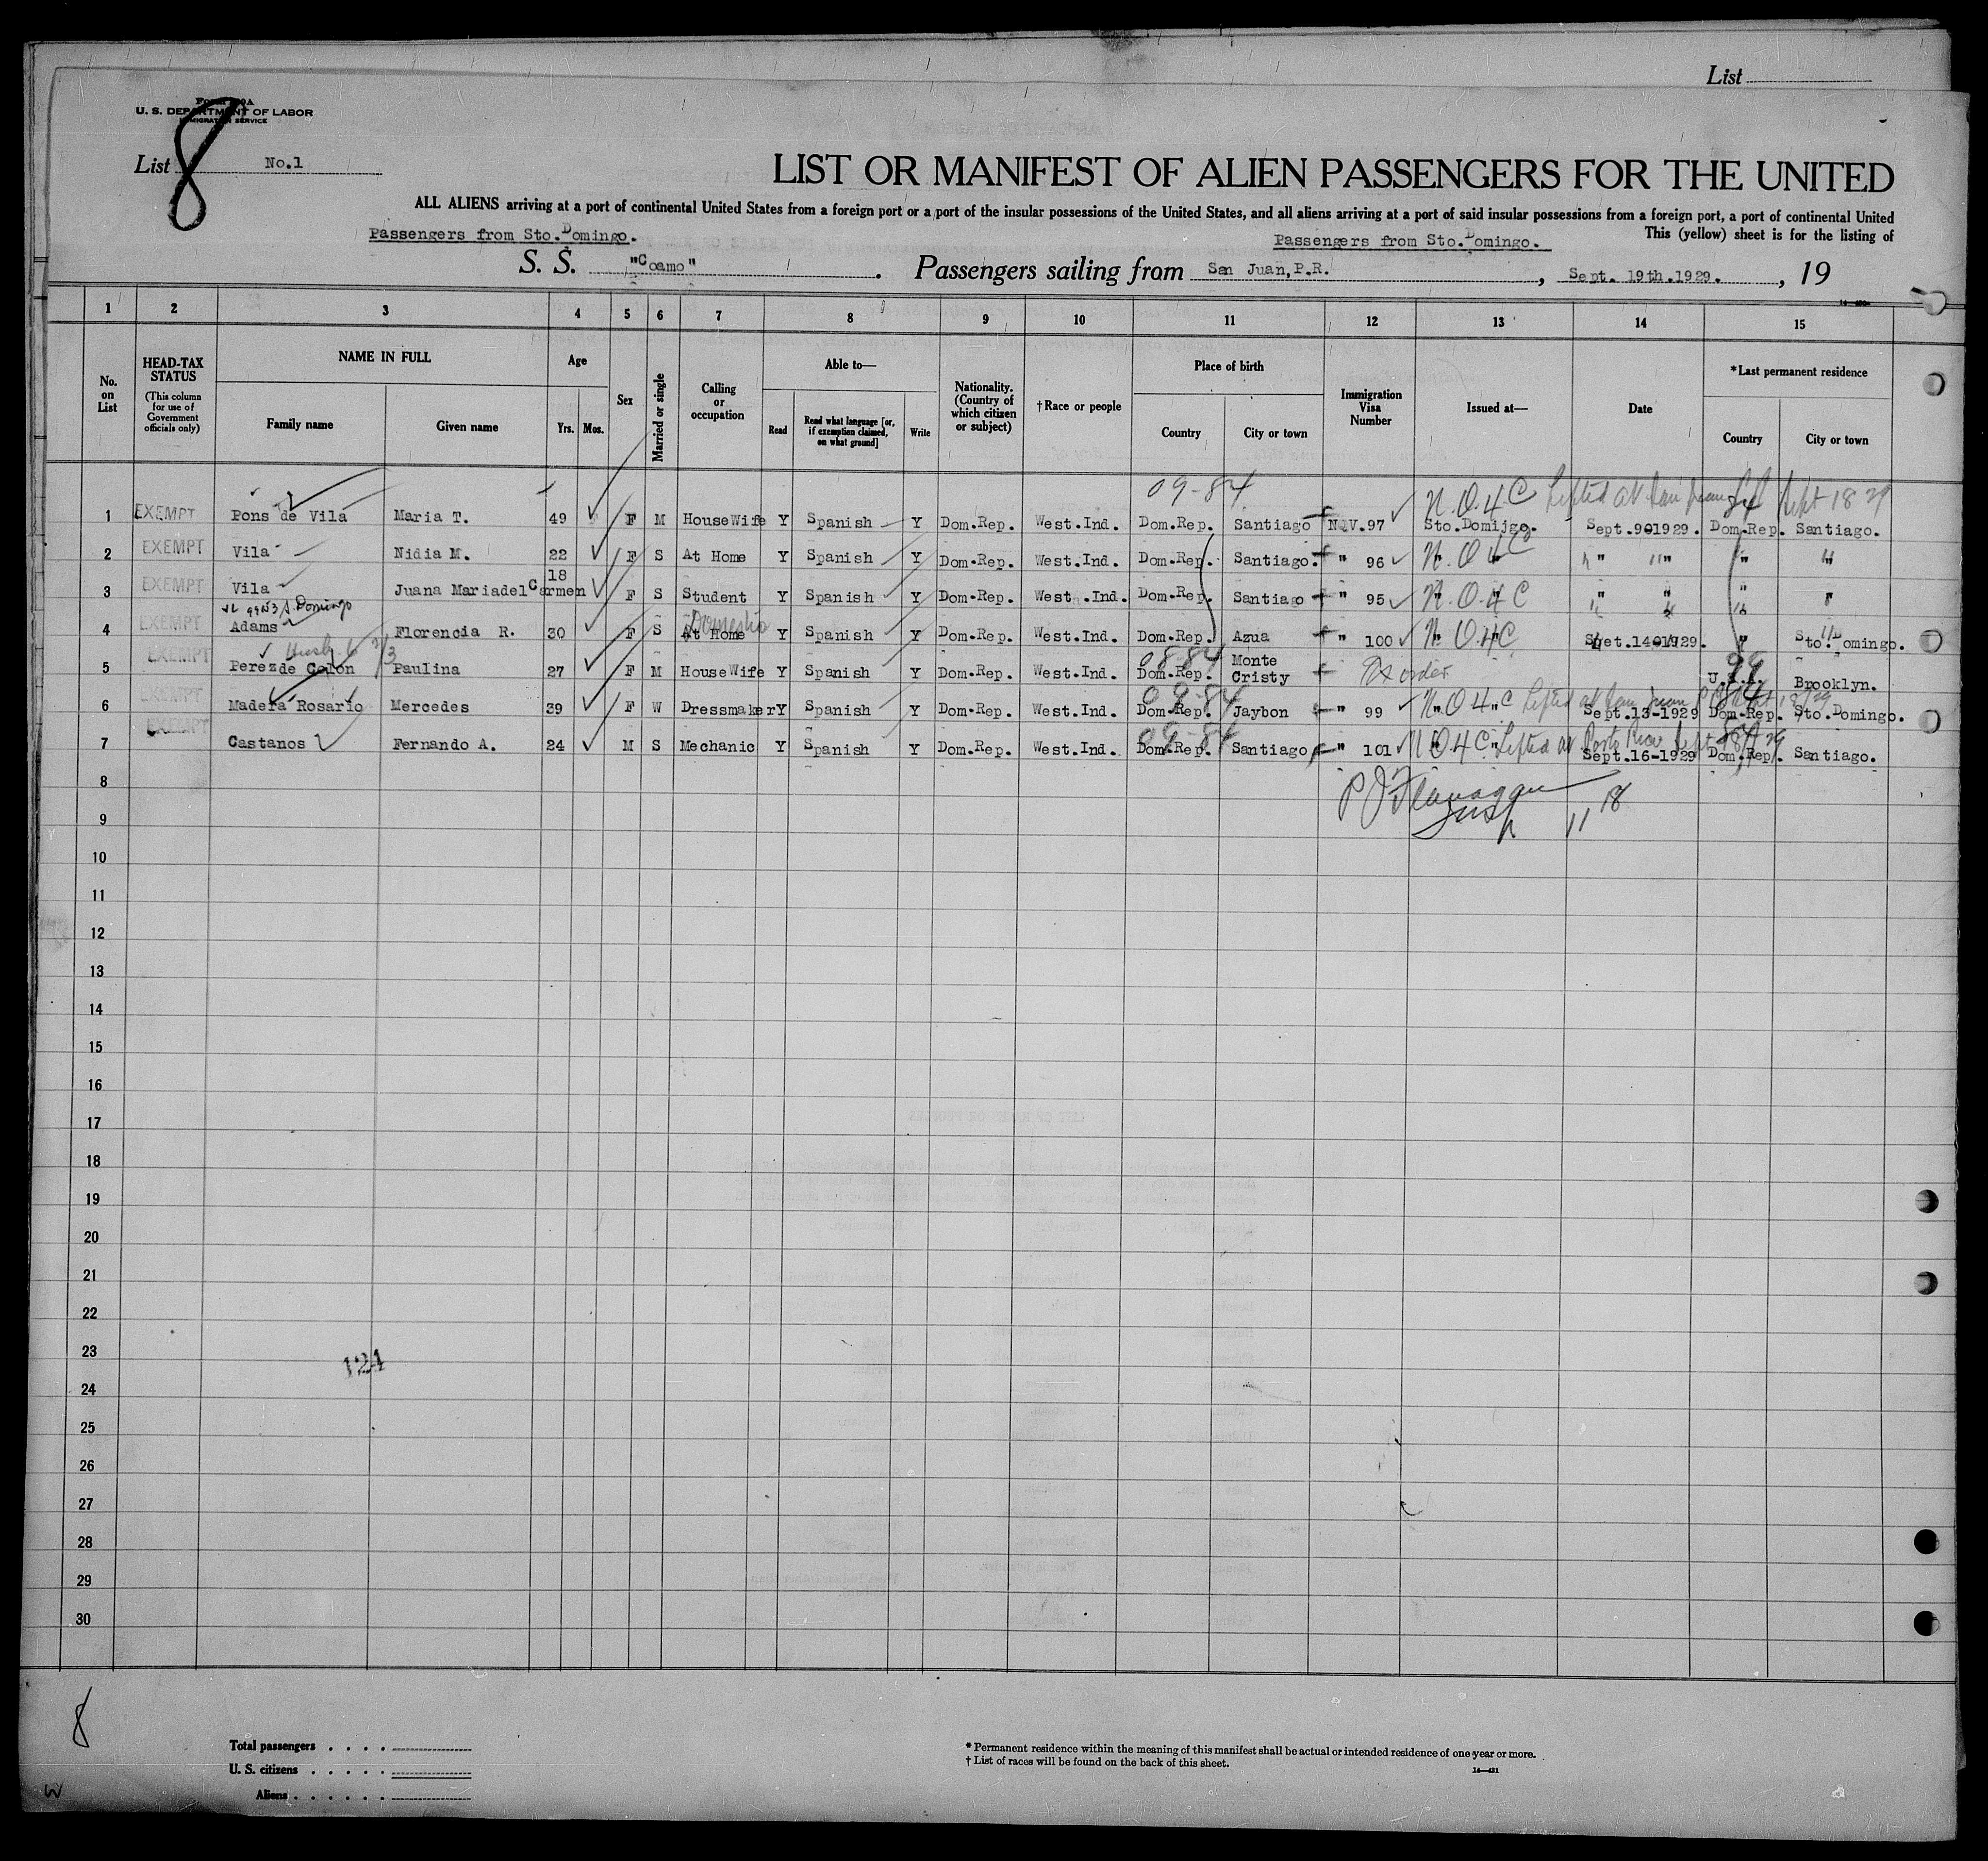 List
Form 500A
U. S. DEPARTMENT OF LABOR
IMMIGRATION SERVICE
8
List No.1
LIST OR MANIFEST OF ALIEN PASSENGERS FOR THE UNITED
ALL ALIENS arriving at a port of continental United States from a foreign port or a port of the insular possessions of the United States, and all aliens arriving at a port of said insular possessions from a foreign port, a port of continental United
Passengers from Sto.Domingo. Passengers from Sto.Domingo. This (yellow) sheet is for the listing of
S. S. "Coamo" . Passengers sailing from San Juan,P.R. , Sept. 19th.1929. , 19
1 2 3 4 5 6 7 8 9 10 11 12 13 14 15
No. on List
HEAD-TAX STATUS (This column for use of Government officials only)
NAME IN FULL
Family name Given name
Age
Yrs. Mos.
Sex
Married or single
Calling or occupation
Able to—
Read Read what language [or, if exemption claimed, on what ground] Write
Nationality. (Country of which citizen or subject)
†Race or people
Place of birth
Country City or town
Immigration Visa Number
Issued at—
Date
*Last permanent residence
Country City or town
09-84 N.O.4C Lifted at San Juan Sept 18 29
1 EXEMPT Pons de Vila Maria T. 49 F M HouseWife Y Spanish Y Dom.Rep. West.Ind. Dom.Rep. Santiago NQV.97 Sto.Domijgo. Sept.9-1929. Dom.Rep. Santiago.
2 EXEMPT Vila Nidia M. 22 F S At Home Y Spanish Y Dom.Rep. West.Ind. Dom.Rep. Santiago. " 96 N.O.4C " " " "
3 EXEMPT Vila Juana MariadelCarmen 18 F S Student Y Spanish Y Dom.Rep. West.Ind. Dom.Rep. Santiago " 95 N.O.4C " " " "
4 EXEMPT Adams Florencia R. 30 F S At Home Domestic Y Spanish Y Dom.Rep. West.Ind. Dom.Rep. Azua " 100 N.O.4C Set.14-1929. " Sto.Domingo.
08-84
5 EXEMPT Perezde Colon Paulina 27 F M HouseWife Y Spanish Y Dom.Rep. West.Ind. Dom.Rep. Monte Cristy Ex order U.S.A. Brooklyn.
09-84
6 EXEMPT Madera Rosario Mercedes 39 F W Dressmaker Y Spanish Y Dom.Rep. West.Ind. Dom.Rep. Jaybon " 99 N.O4C " Lifted at San Juan Sept.13-1929 Dom.Rep. Sto.Domingo.
09-84
7 EXEMPT Castanos Fernando A. 24 M S Mechanic Y Spanish Y Dom.Rep. West.Ind. Dom.Rep. Santiago " 101 N O4C " Lifted at Porto Rico Sept.16-1929 Dom.Rep. Santiago.
8
P J Flanagan
Insp 11 18
9
10
11
12
13
14
15
16
17
18
19
20
21
22
23
124
24
25
26
27
28
29
30
8
Total passengers . . . .
U. S. citizens . . . . .
Aliens . . . . . .
* Permanent residence within the meaning of this manifest shall be actual or intended residence of one year or more.
† List of races will be found on the back of this sheet.
14—431
W